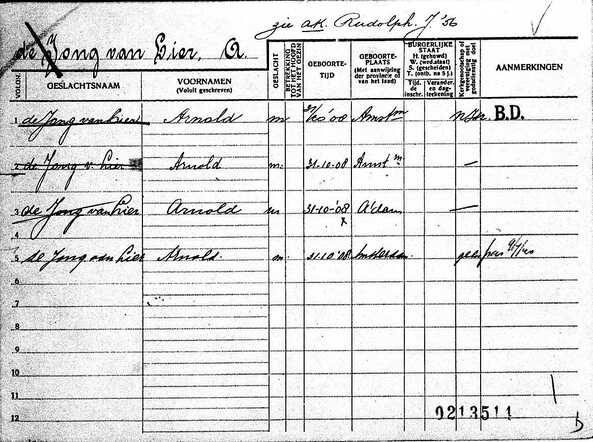 zie A.K. Rudolph. J. '06
de Jong van Lier, A.
VOLGN.
GESLACHTSNAAM
VOORNAMEN
(Voluit geschreven)
GESLACHT
BETREKKING TOT HET HOOFD VAN HET GEZIN
GEBOORTE-
TIJD
GEBOORTE-
PLAATS
(Met aanwijzing
der provincie of
van het land)
BURGERLIJKE
STAAT
H. (gehuwd)
W. (wed.staat)
S. (gescheiden)
T. (ontb. na 5 j.)
Tijd. de inschr.
Verander. en dag-teekening
AANMERKINGEN
1 de Jong van Lier Arnold m 31/10 '08 Amst dm B.D.
2 de Jong v. Lier Arnold m. 31-10-08 Amst m —
3 de Jong van Lier Arnold m 31-10-'08 A'dam —
4
5 de Jong van Lier Arnold. m. 31.10 '08 Amsterdam. geen
6
7
8
9
10
11
12
0213511